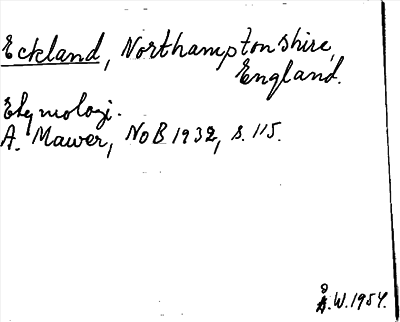 Eckland, Northamptonshire,
England.
Etymologi.
A. Mawer, NoB 1932, s. 115.
Å.W. 1954.